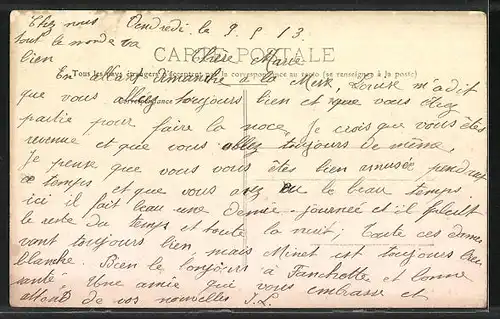 Chez nous Vendredi le 9. 5 13.
tout le monde va CARTE POSTALE
bien Chère Marie
Tous les pays étrangers n'acceptent pas la correspondance au recto (se renseigner à la poste)
En allant dimanche à la Messe, Louise m'a dit
que vous allez toujours bien et que vous étiez
Correspondance
partie pour faire la noce, Je crois que vous êtes
revenue et que vous allez toujours de même,
Je pense que vous vous êtes bien amusée pendant
ce temps et que vous avez eu le beau temps
ici il fait beau une demie-journée et il pleut
le reste du temps et toute la nuit; Toute ces dames
vont toujours bien, mais Minet est toujours bien
blanche. Bien le bonjour à Fanchette et bonne
santé. Une amie qui vous embrasse et
attend de vos nouvelles J. L.